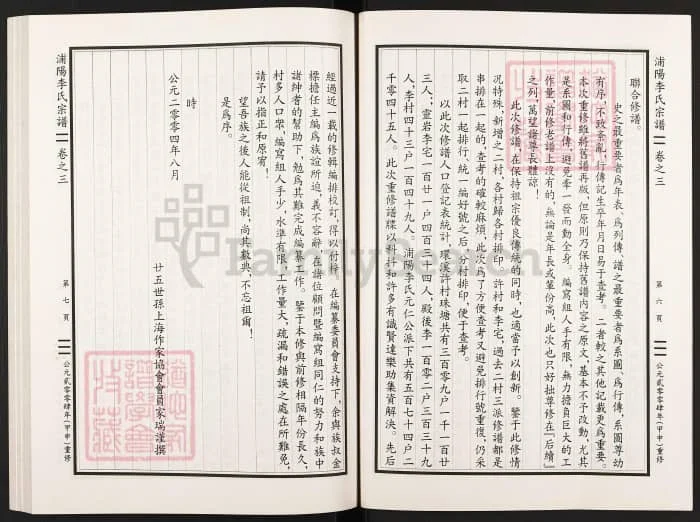 浦陽李氏宗譜
卷之三
第六頁
公元貳零零肆年(甲申)重修
聯合修譜。
史之最重要者爲年表、爲列傳、譜之最重要者爲系圖、爲行傳，系圖尊幼
有序，不致紊亂，行傳記生卒年月日易于查考。二者較之其他記載更爲重要。
本次重修雖將舊譜再版，但原則乃保持舊譜内容之原文，基本不予改動，尤其
是系圖和行傳，避免牽一發而動全身。編寫組人手有限，無力擔負巨大的工
作量，前修老譜上没有的，無論是年長或輩份高，此次也只好拙尊修在「后續」
之列，萬望諸尊長體諒！
此次修譜，在保持祖宗優良傳統的同時，也適當予以創新。鑒于此修情
况特殊，新增之二村，各村歸各村排印，許村和李宅，過去二村三派修譜都是
串排在一起的，查考的確較麻煩，此次爲了方便查考又避免排行號重復，仍采
取二村一起排行，統一編好號之后，分村排印，便于查考。
以此次修譜人口登記表統計，環溪許村珠塘共有三百零九户一千一百廿
三人；靈岩李宅一百廿一户四百三十四人，殿後李一百零二户三百三十九
人，李村四十三户一百四十九人，浦陽李氏元仁公派下共有五百七十四户二
千零四十五人。此次重修譜牒以科抖和許多有識賢達樂助集資解決。先后
經過近一載的修輯編排校訂，得以付梓，在編纂委員會支持下，余與族叔金
標擔任主編爲族誼所迫，義不容辭，在諸位顧問暨編寫組同仁的努力和族中
諸紳者的幫助下，勉爲其難完成編纂工作。鑒于本修與前修相隔年份長久，
村多人口衆，編寫組人手少，水準有限，工作量大，疏漏和錯誤之處在所難免，
請予以指正和原宥！
望吾族之後人能從祖制，尚其數典，不忘祖爾！
是爲序。
時
公元二零零四年八月
廿五世孫上海作家協會會員家瑞謹撰
浦陽李氏宗譜
卷之三
第七頁
公元貳零零肆年(甲申)重修
FamilySearch